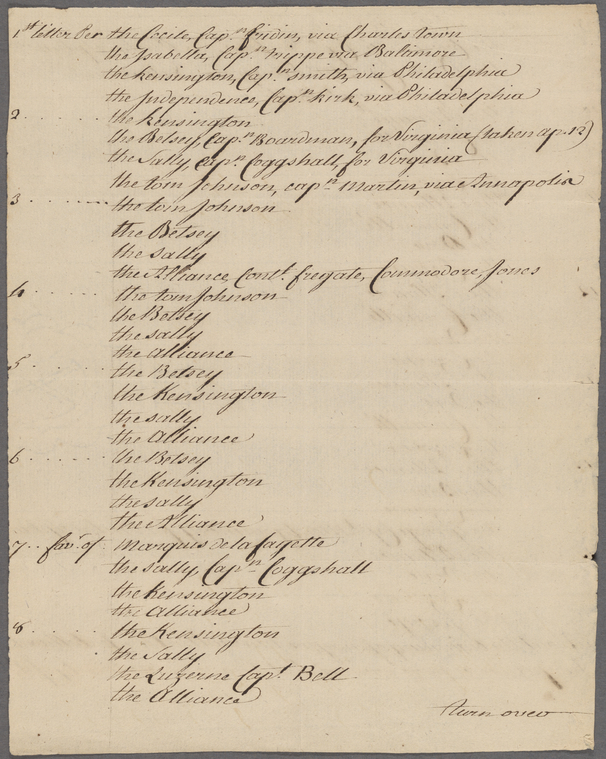 1st letter Per the Cecile, Capn. fridin, via Charles Town
the Isabella, Capn. trippe via Baltimore
the Kensington, Capn. Smith, via Philadelphia
the Independence, Capn. Kirk, via Philadelphia
2 . . . . . . . . the Kensington
the Betsey, Capn. Boardman, for Virginia (taken ap. 12)
the Sally, Capn. Coggshall, for Virginia
the tom Johnson, capn. Martin, via Annapolis
3 . . . . . . . . the tom Johnson
the Betsey
the Sally
the Alliance, Contl. fregate, Commodore, Jones
4 . . . . . . . the tom Johnson
the Betsey
the Sally
the Alliance
5 . . . . . . the Betsey
the Kensington
the Sally
the Alliance
6 . . . . . . . the Betsey
the Kensington
the Sally
the Alliance
7 . . favr. of Marquis de la fayette
the Sally, Capn. Coggshall
the Kensington
the Alliance
8 . . . . . . . the Kensington
the Sally
the Luzerne Capt. Bell
the Alliance
turn over